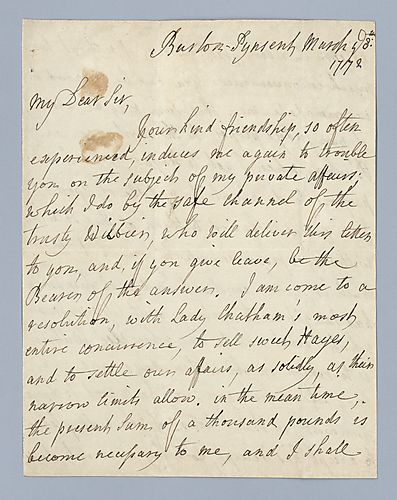 Burton-Pynsent, March 9th:
1772
My Dear Sir,
Your kind friendship, so often
experienced, induces me again to trouble
you on the subject of my private affairs:
which I do by the safe channel of the
trusty Wilbier, who will deliver this letter
to you, and, if you give leave, be the
Bearer of the answer. I am come to a
resolution, with Lady Chatham's most
entire concurrence, to sell sweet Hayes,
and to settle our affairs, as solidly, as their
narrow limits allow. in the mean time,
the present Sum of a thousand pounds is
become necessary to me, and I shall